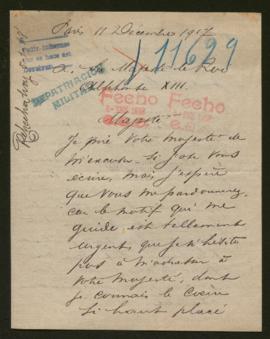 Paris 11 Decembre 1917
11629
A Sa Majesté le Roi
Alphonse XIII.
REPATRIACION
MILITAR
Fecho Fecho
Majesté
Je prie Votre Majesté de
m'excuser si j'ose Vous
écrire, mais j'espère
que Vous me pardonnerez,
car le motif qui me
guide est tellement
urgent que je n'hésite
pas à m'adresser à
Votre Majesté, dont
je connais le Cœur
si haut placé